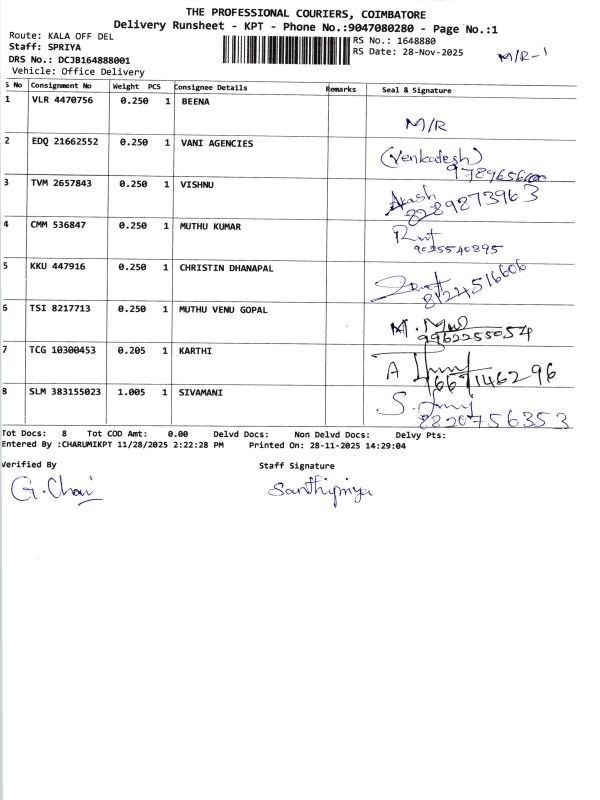 THE PROFESSIONAL COURIERS, COIMBATORE
Delivery Runsheet - KPT - Phone No.:9047080280 - Page No.:1
Route: KALA OFF DEL
RS No.: 1648880
M/R-1
Staff: SPRIYA
RS Date: 28-Nov-2025
DRS No.: DCJB164888001
Vehicle: Office Delivery
S No Consignment No Weight PCS Consignee Details Remarks Seal & Signature
1 VLR 4470756 0.250 1 BEENA
M/R
2 EDQ 21662552 0.250 1 VANI AGENCIES
(Venkadesh)
3 TVM 2657843 0.250 1 VISHNU
Akash
8289873963
4 CMM 536847 0.250 1 MUTHU KUMAR
9025540895
5 KKU 447916 0.250 1 CHRISTIN DHANAPAL
8124516606
6 TSI 8217713 0.250 1 MUTHU VENU GOPAL
9962255054
7 TCG 10300453 0.205 1 KARTHI
8 SLM 383155023 1.005 1 SIVAMANI
8220756353
Tot Docs: 8 Tot COD Amt: 0.00 Delvd Docs: Non Delvd Docs: Delvy Pts:
Entered By :CHARUMIKPT 11/28/2025 2:22:28 PM Printed On: 28-11-2025 14:29:04
Verified By Staff Signature
Santhipriya